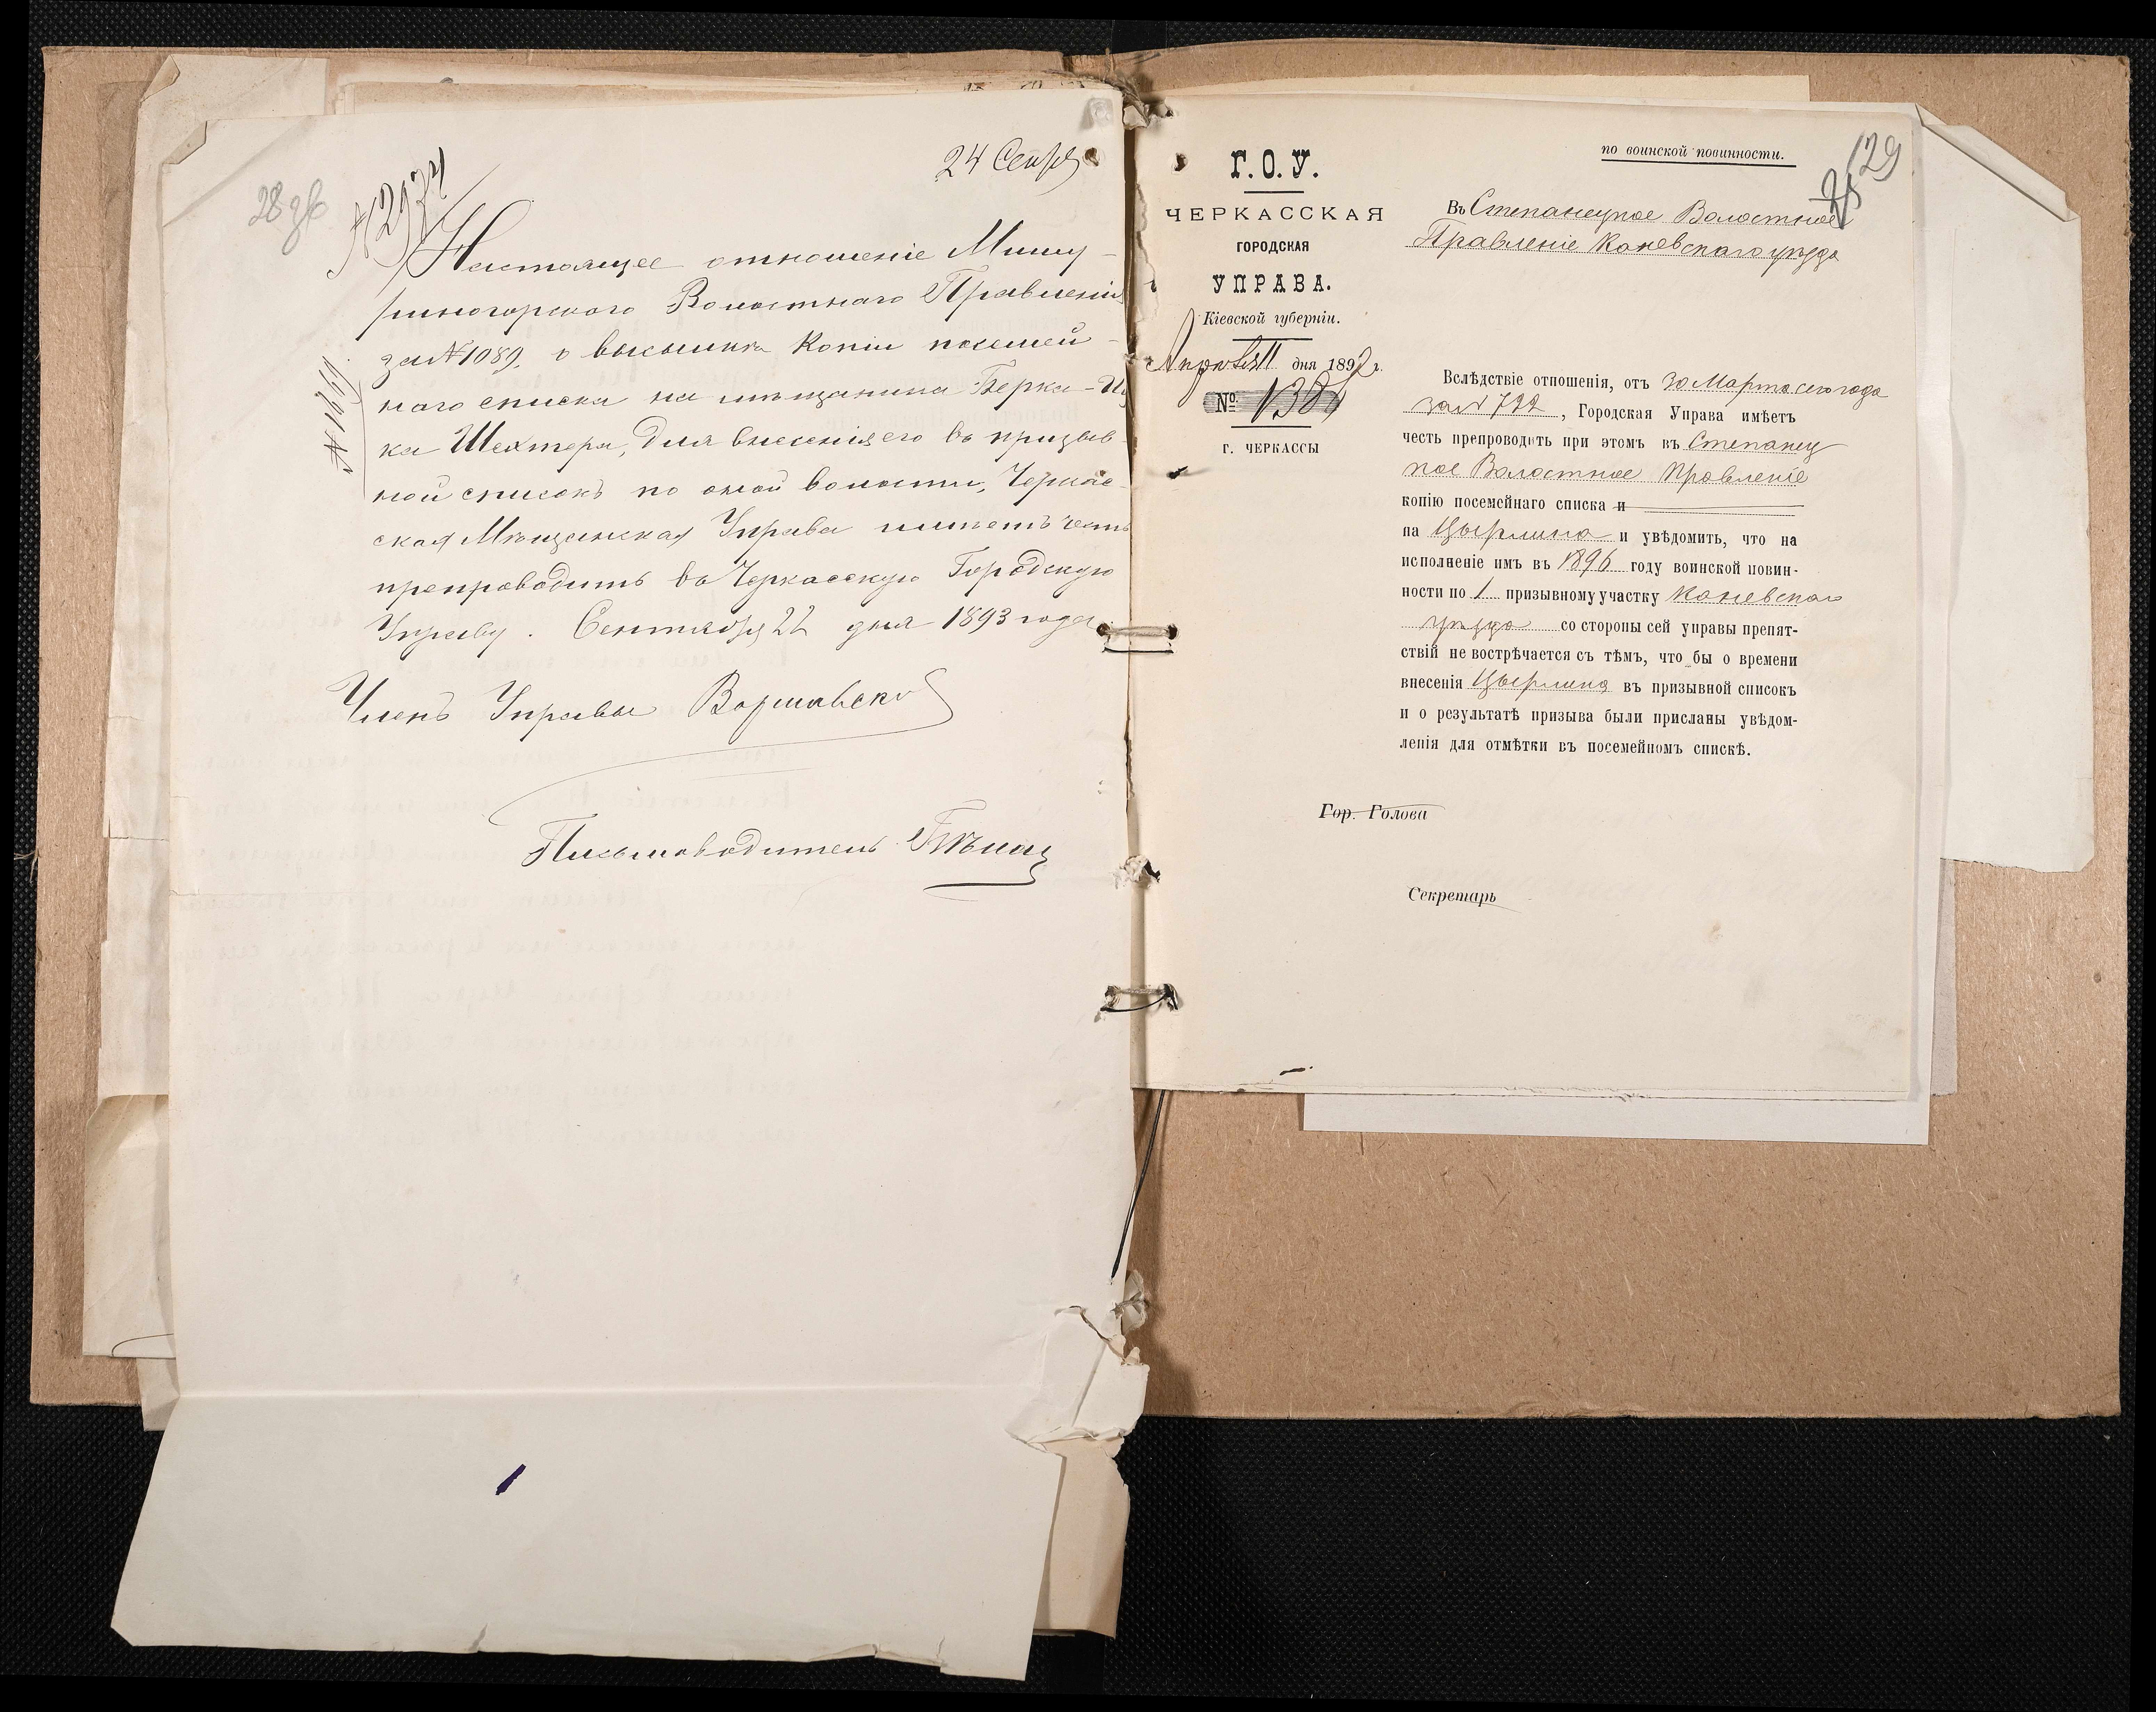 24 Сентр
28 зв
№ 1991.
Настоящее отношеніе Мишу-
риногорского Волостнаго Правленія
за № 1089, о высылкѣ копіи посемей-
наго списка на мѣщанина Берка-Иц
ка Шехтера, для внесенія его въ призыв-
ной списокъ по оной волости, Черкас-
ская Мѣщанская Управа имѣетъ честь
препроводить въ Черкасскую Городскую
Управу. Сентября 22 дня 1893 года.
Членъ Управы Варшавскі
Письмоводитель
по воинской повинности.
129
Г. О. У.
ЧЕРКАССКАЯ
ГОРОДСКАЯ
УПРАВА.
Кіевской губерніи.
Апрѣля 11 дня 189 г.
№ 138
г. ЧЕРКАССЫ
Въ Степанецкое Волостное
Правленіе Каневскаго уѣзда
Вслѣдствіе отношенія, отъ 30 Марта сего года
за № 722, Городская Управа имѣетъ
честь препроводить при этомъ въ Степанец
кое Волостное Правленіе
копію посемейнаго списка и
на Цырлина и увѣдомить, что на
исполненіе имъ въ 1896 году воинской повин-
ности по 1 призывному участку Каневскаго
уѣзда со стороны сей управы препят-
ствій не встрѣчается съ тѣмъ, что бы о времени
внесенія Цырлина въ призывной списокъ
и о результатѣ призыва были присланы увѣдом-
ленія для отмѣтки въ посемейномъ спискѣ.
Гор. Голова
Секретарь